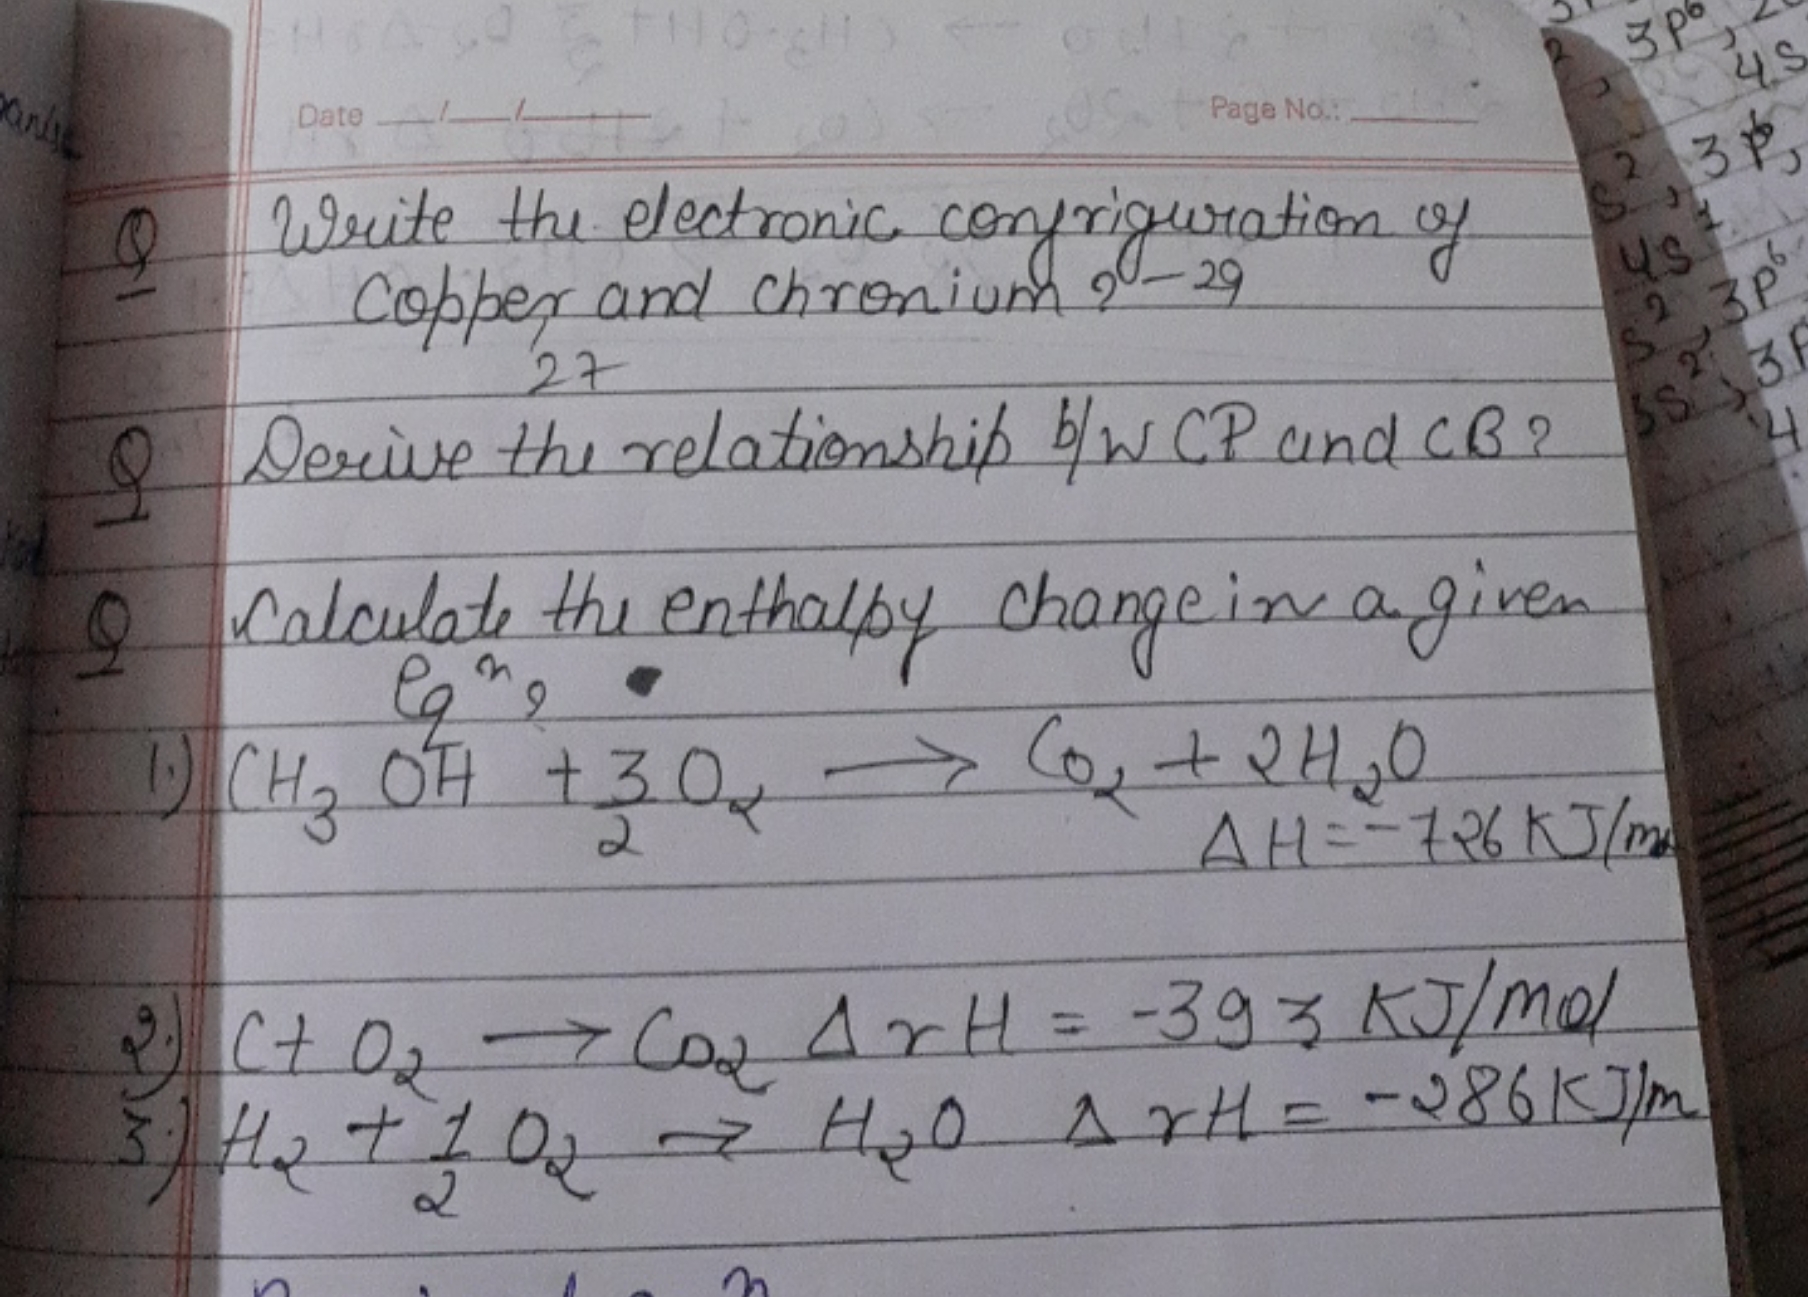 Date __/__/____ Page No.: ____
Q Write the electronic confriguration of
Copper and chronium ? - 29
27
Q Derive the relationship b/w CP and CB?
Q Calculate the enthalpy change in a given
eqⁿ?
1.) CH₃OH + 3/2 O₂ → CO₂ + 2H₂O
ΔH = -726 KJ/mo
2.) C + O₂ → CO₂ ΔrH = -393 KJ/mol
3.) H₂ + 1/2 O₂ → H₂O ΔrH = -286 KJ/m
3p⁶,
4s
s², 3p⁶,
4s¹
s², 3p⁶
3s², 3p
4